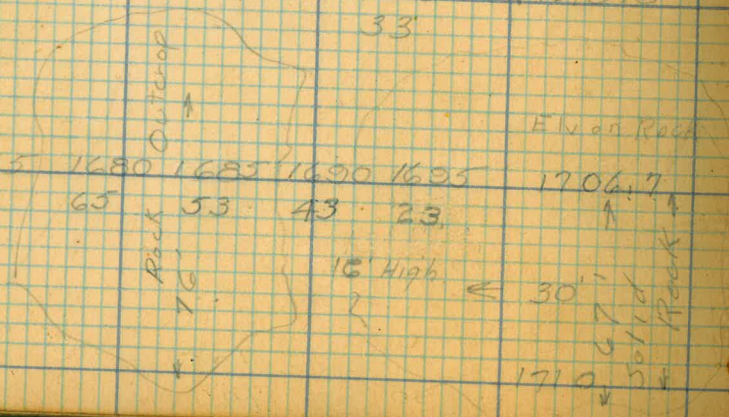 33'
Outcrop
Elv on Rock
5 1680 1685 1690 1695 1706.7
65 53 43 23
Rock 76'
16' High ← 30'
67'
Solid Rock
1710